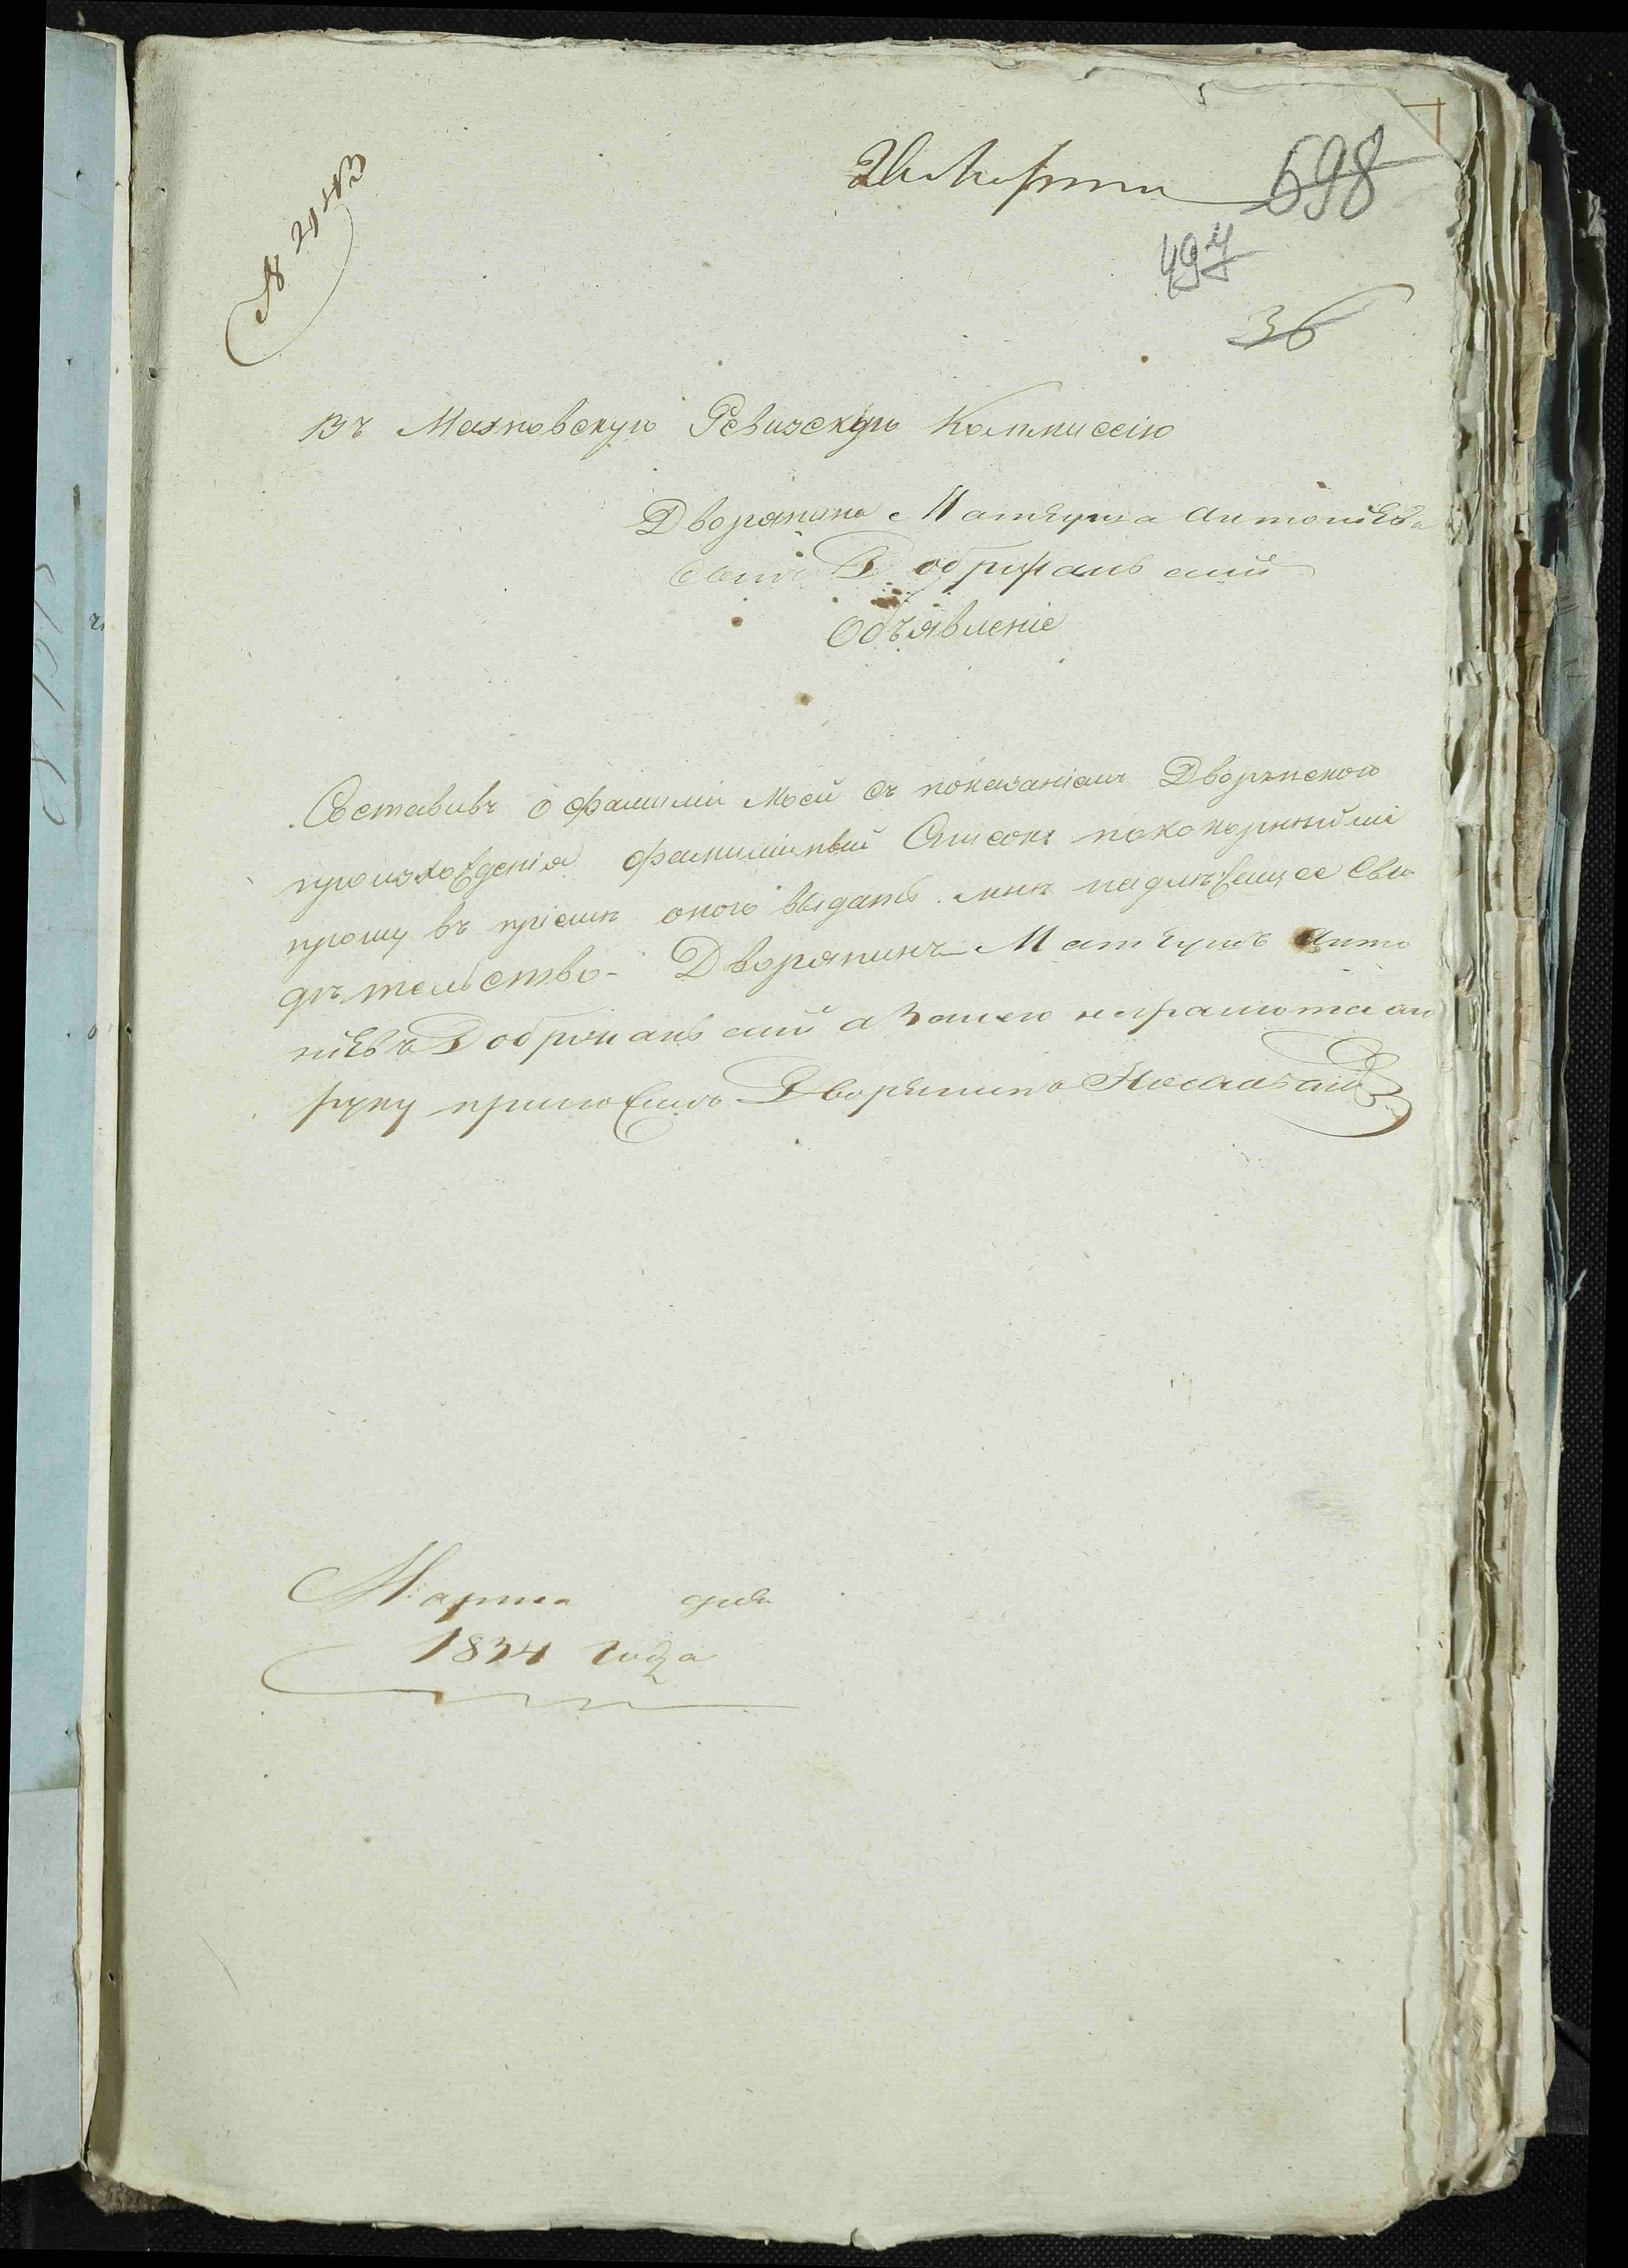 Марта
698
497
36
Въ Махновскую Ревизскую Коммиссію
Дворянина Матеуша Антоніева
сына Добржанъский
Объявленіе
Составивъ о фамиліи моей съ показаніемъ Дворянского
произхожденія фамилийный Списокъ поконорнийши
прошу въ пріемѣ оного выдать мнѣ надлѣжащее Сви
дѣтельство - Дворянинъ Матеушъ Анто
ніевъ Добржанъский а Занего неграмотного
руку приложилъ Дворянинъ
Марта дня
1834 года